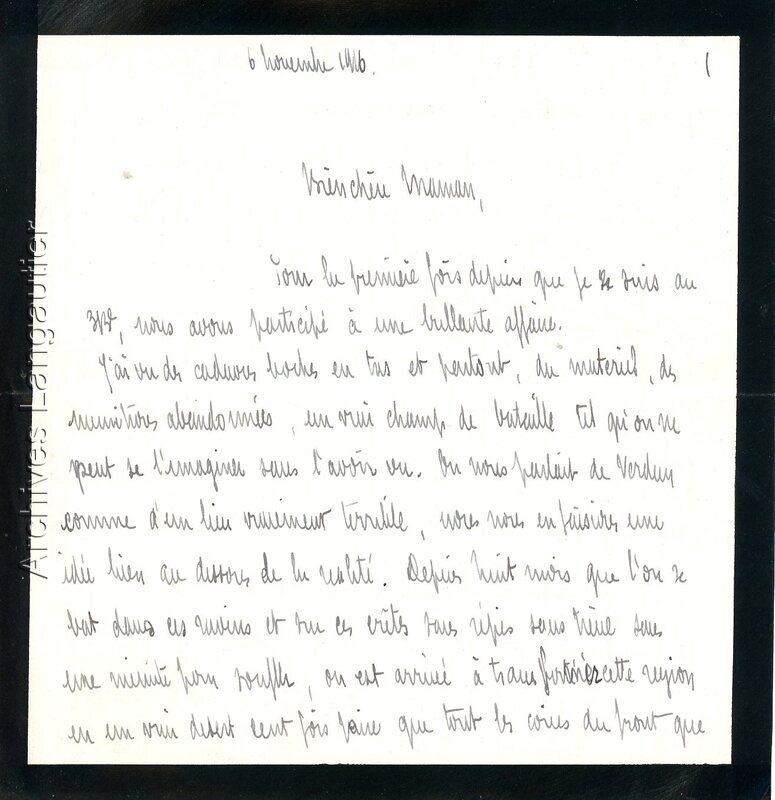 6 novembre 1916.
1
Bien chère Maman,
Pour la première fois depuis que je suis au
nous avons participé à une brillante affaire.
J'ai vu des cadavres boches en tas et partout, du matériel, des
munitions abandonnées, un vrai champ de bataille tel qu'on ne
peut se l'imaginer sans l'avoir vu. On nous parlait de Verdun
comme d'un lieu vraiment terrible, nous nous en faisions une
idée bien au dessous de la réalité. Depuis huit mois que l'on se
bat dans ces ravins et sur ces crêtes sans répis sans trève sans
une minute pour souffler, on est arrivé à transformer cette region
en un vrai desert cent fois pire que tout les coins du front que
Archives Langautier